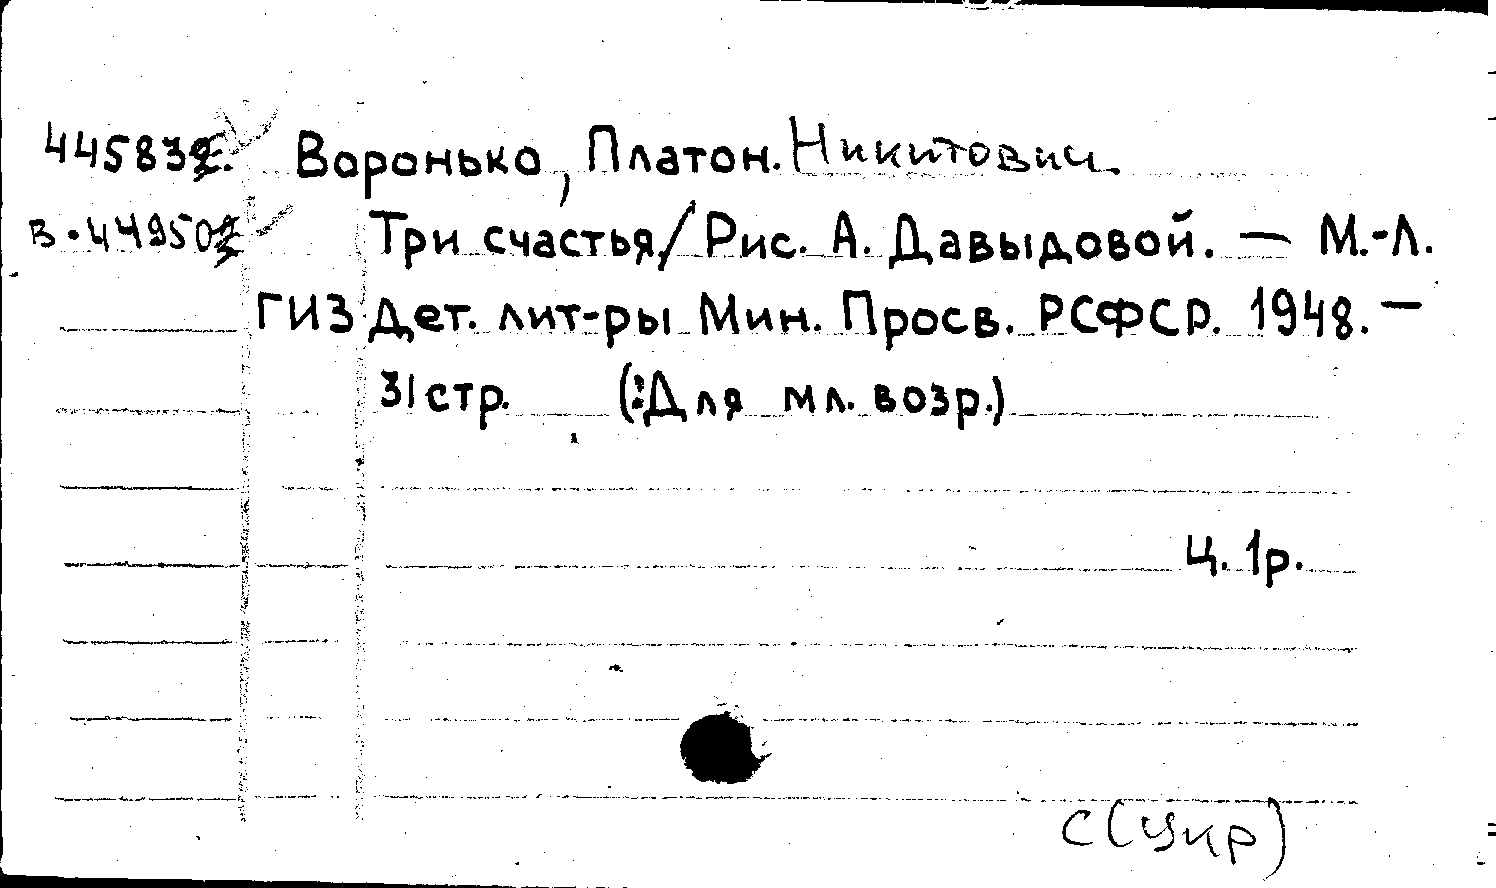 Воронько, Платон. Никитович
Три счастья/Рис. А. Давыдовой. — М.-Л.
ГИЗ Дет. лит-ры Мин. Просв. РСФСР. 1948. —
31 стр. (:Для мл. возр.)
Ц. 1р.
С(Укр)